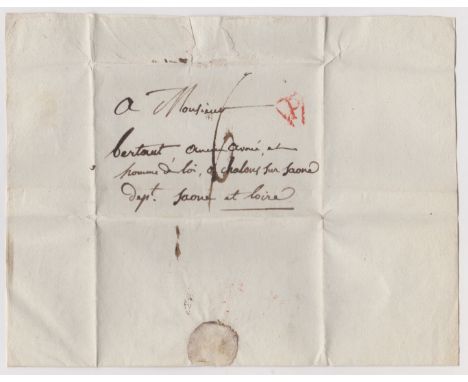 a Monsieur
bertaut ancien avoué, et
homme de loi, a chalons sur saone
dept. saone et loire
6
P